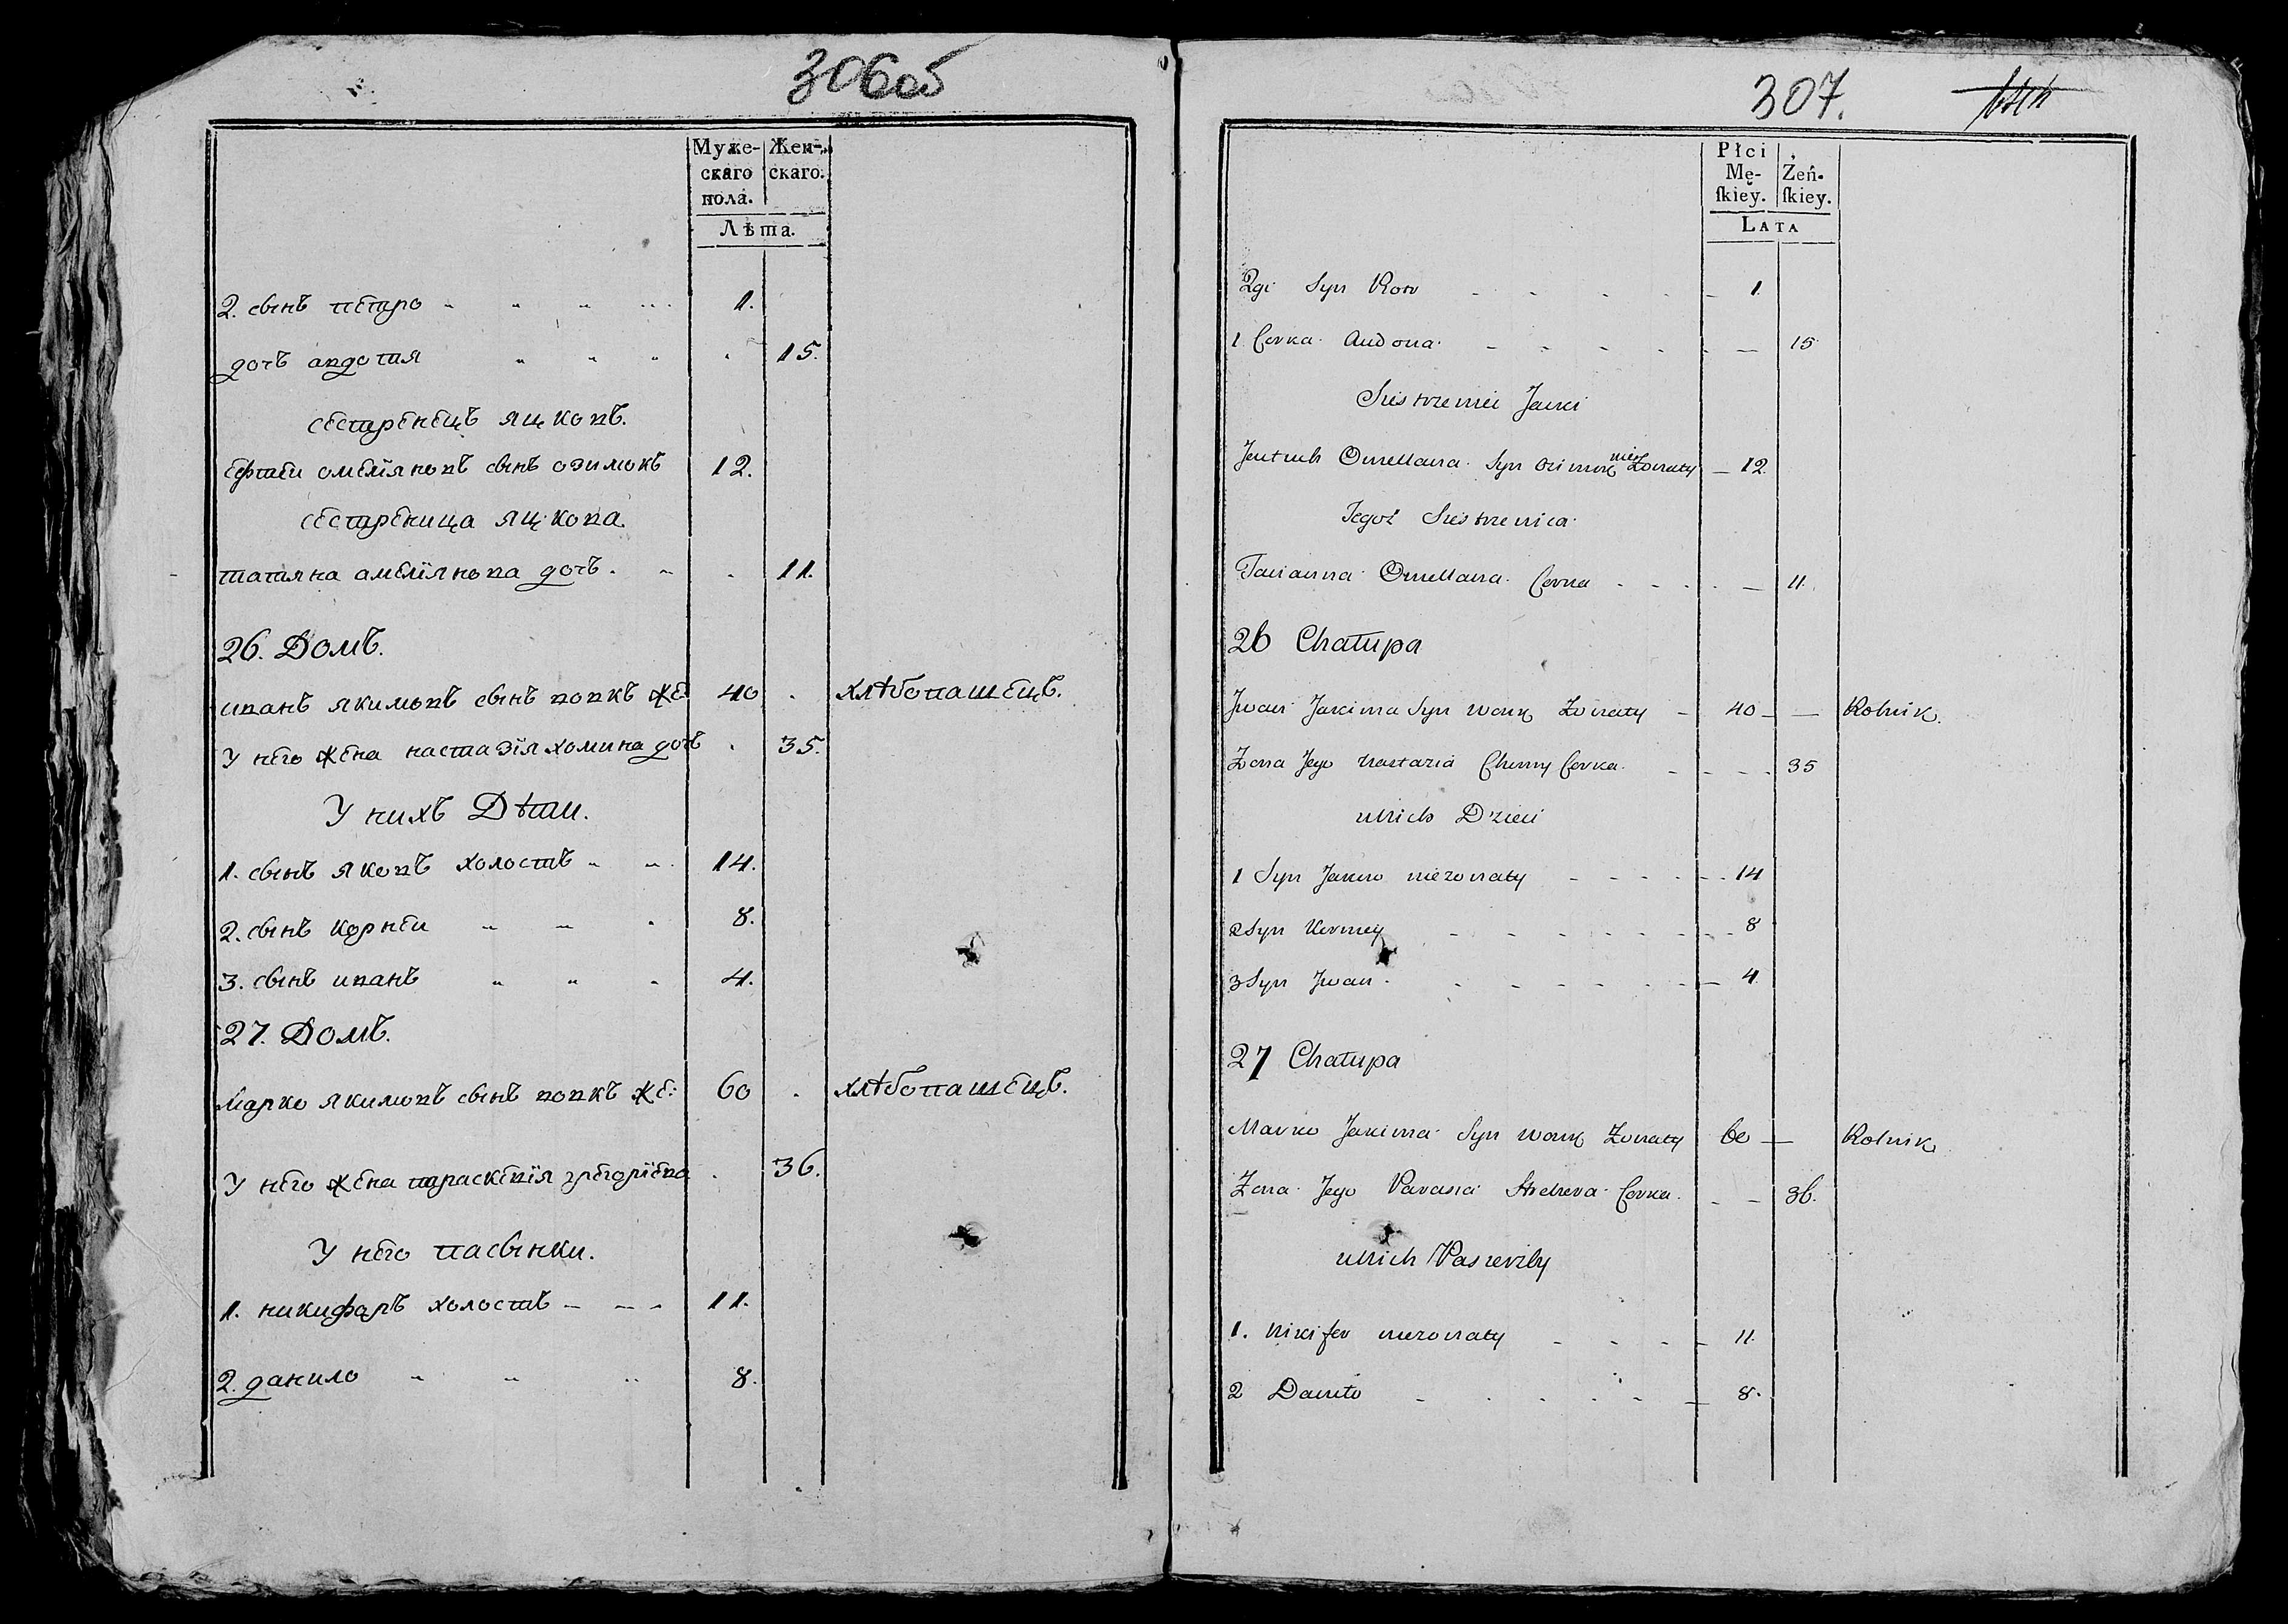 306об
Муже-
скаго
пола.
Жен-
скаго.
Лѣта.
2. сынъ петро 1.
дочъ авдотия 15.
сестренецъ яцковъ.
ефтеи омелїяновъ сынъ озимокъ 12.
сестреница яцкова.
татяна амелїянова дочъ. 11.
26. Домъ.
иванъ якимовъ сынъ вовкъ же: 40 . хлѣбопашецъ.
У него жена настазїя хомина дочъ . 35.
У нихъ Дѣти.
1. сынъ яковъ холостъ 14.
2. сынъ корнеи 8.
3. сынъ иванъ 4.
27. Домъ.
Марко якимовъ сынъ вовкъ же: 60 . хлѣбопашецъ.
У него жена параскевїя григорїева . 36.
У него пасынки.
1. никифаръ холостъ 11.
2. данило 8.
307.
Płci
Mę-
ſkiey.
Żeń-
ſkiey.
LATA
2gi Syn 1
1 Corka Audotia 15
Siestrzeniec Jacki
Omellana Syn Ozimok nie Zonaty 12
Jegoż Siestrzenica
Tacianna Omellana Corka 11.
26 Chałupa
Jwan Jakima Syn Wowk Zonaty 40 Rolnik.
Zona Jego Nastazia Chomy Corka 35
u Nich Dzieci
1 Syn Jakow niezonaty 14
2 Syn Korniey 8
3 Syn Jwan 4
27 Chałupa
Marko Jakima Syn Wowk Zonaty 60 Rolnik
Zona Jego Parasia Corka 36.
u Nich Pasierzby
1. Nikifor niezonaty 11.
2 Daniło 8.